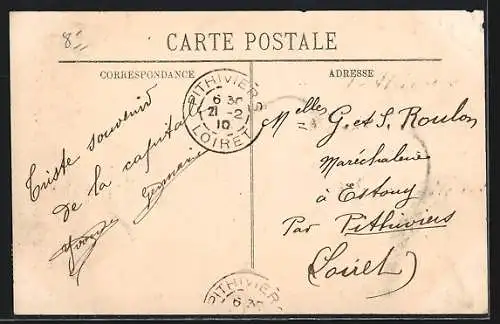 8"
CARTE POSTALE
CORRESPONDANCE
ADRESSE
PITHIVIERS
6 30
21 -2
10
LOIRET
Triste souvenir
de la capitale
Germaine
Melles G. et S. Roulon
Maréchalerie
à Estouy
Par Pithiviers
(Loiret)
PITHIVIERS
6 30